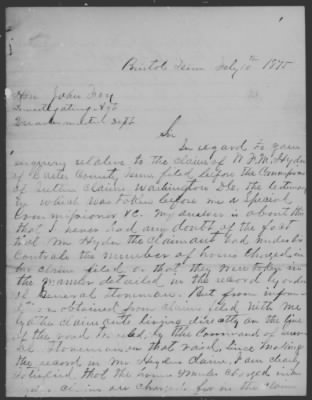 Bristol Tenn July 10th 1875
Hon. John
Investigating Agt
Quartermaster Dept
Sir
In regard to your
inquiry relative to the claim of N. F. M. Hyder
of Carter County Tenn filed before the Commissioners
of Southern Claims Washington D.C. the testimony
in which was taken before me a Special
Commissioner, &c. My answer is about this
that I never had any doubt of the fact
that Mr Hyder the claimant had under his
control the number of horses charged in
his claim filed or that they were taken in
the manner detailed in the record by order
of General Stoneman. But from
obtained from claims filed with me
by other claimants living directly on the line
of the road traveled by the Command of
Stoneman on that raid, since making
the record in Mr Hyders claim, I am clearly
satisfied that the horses & mules charged in
claims are charged for in the claim